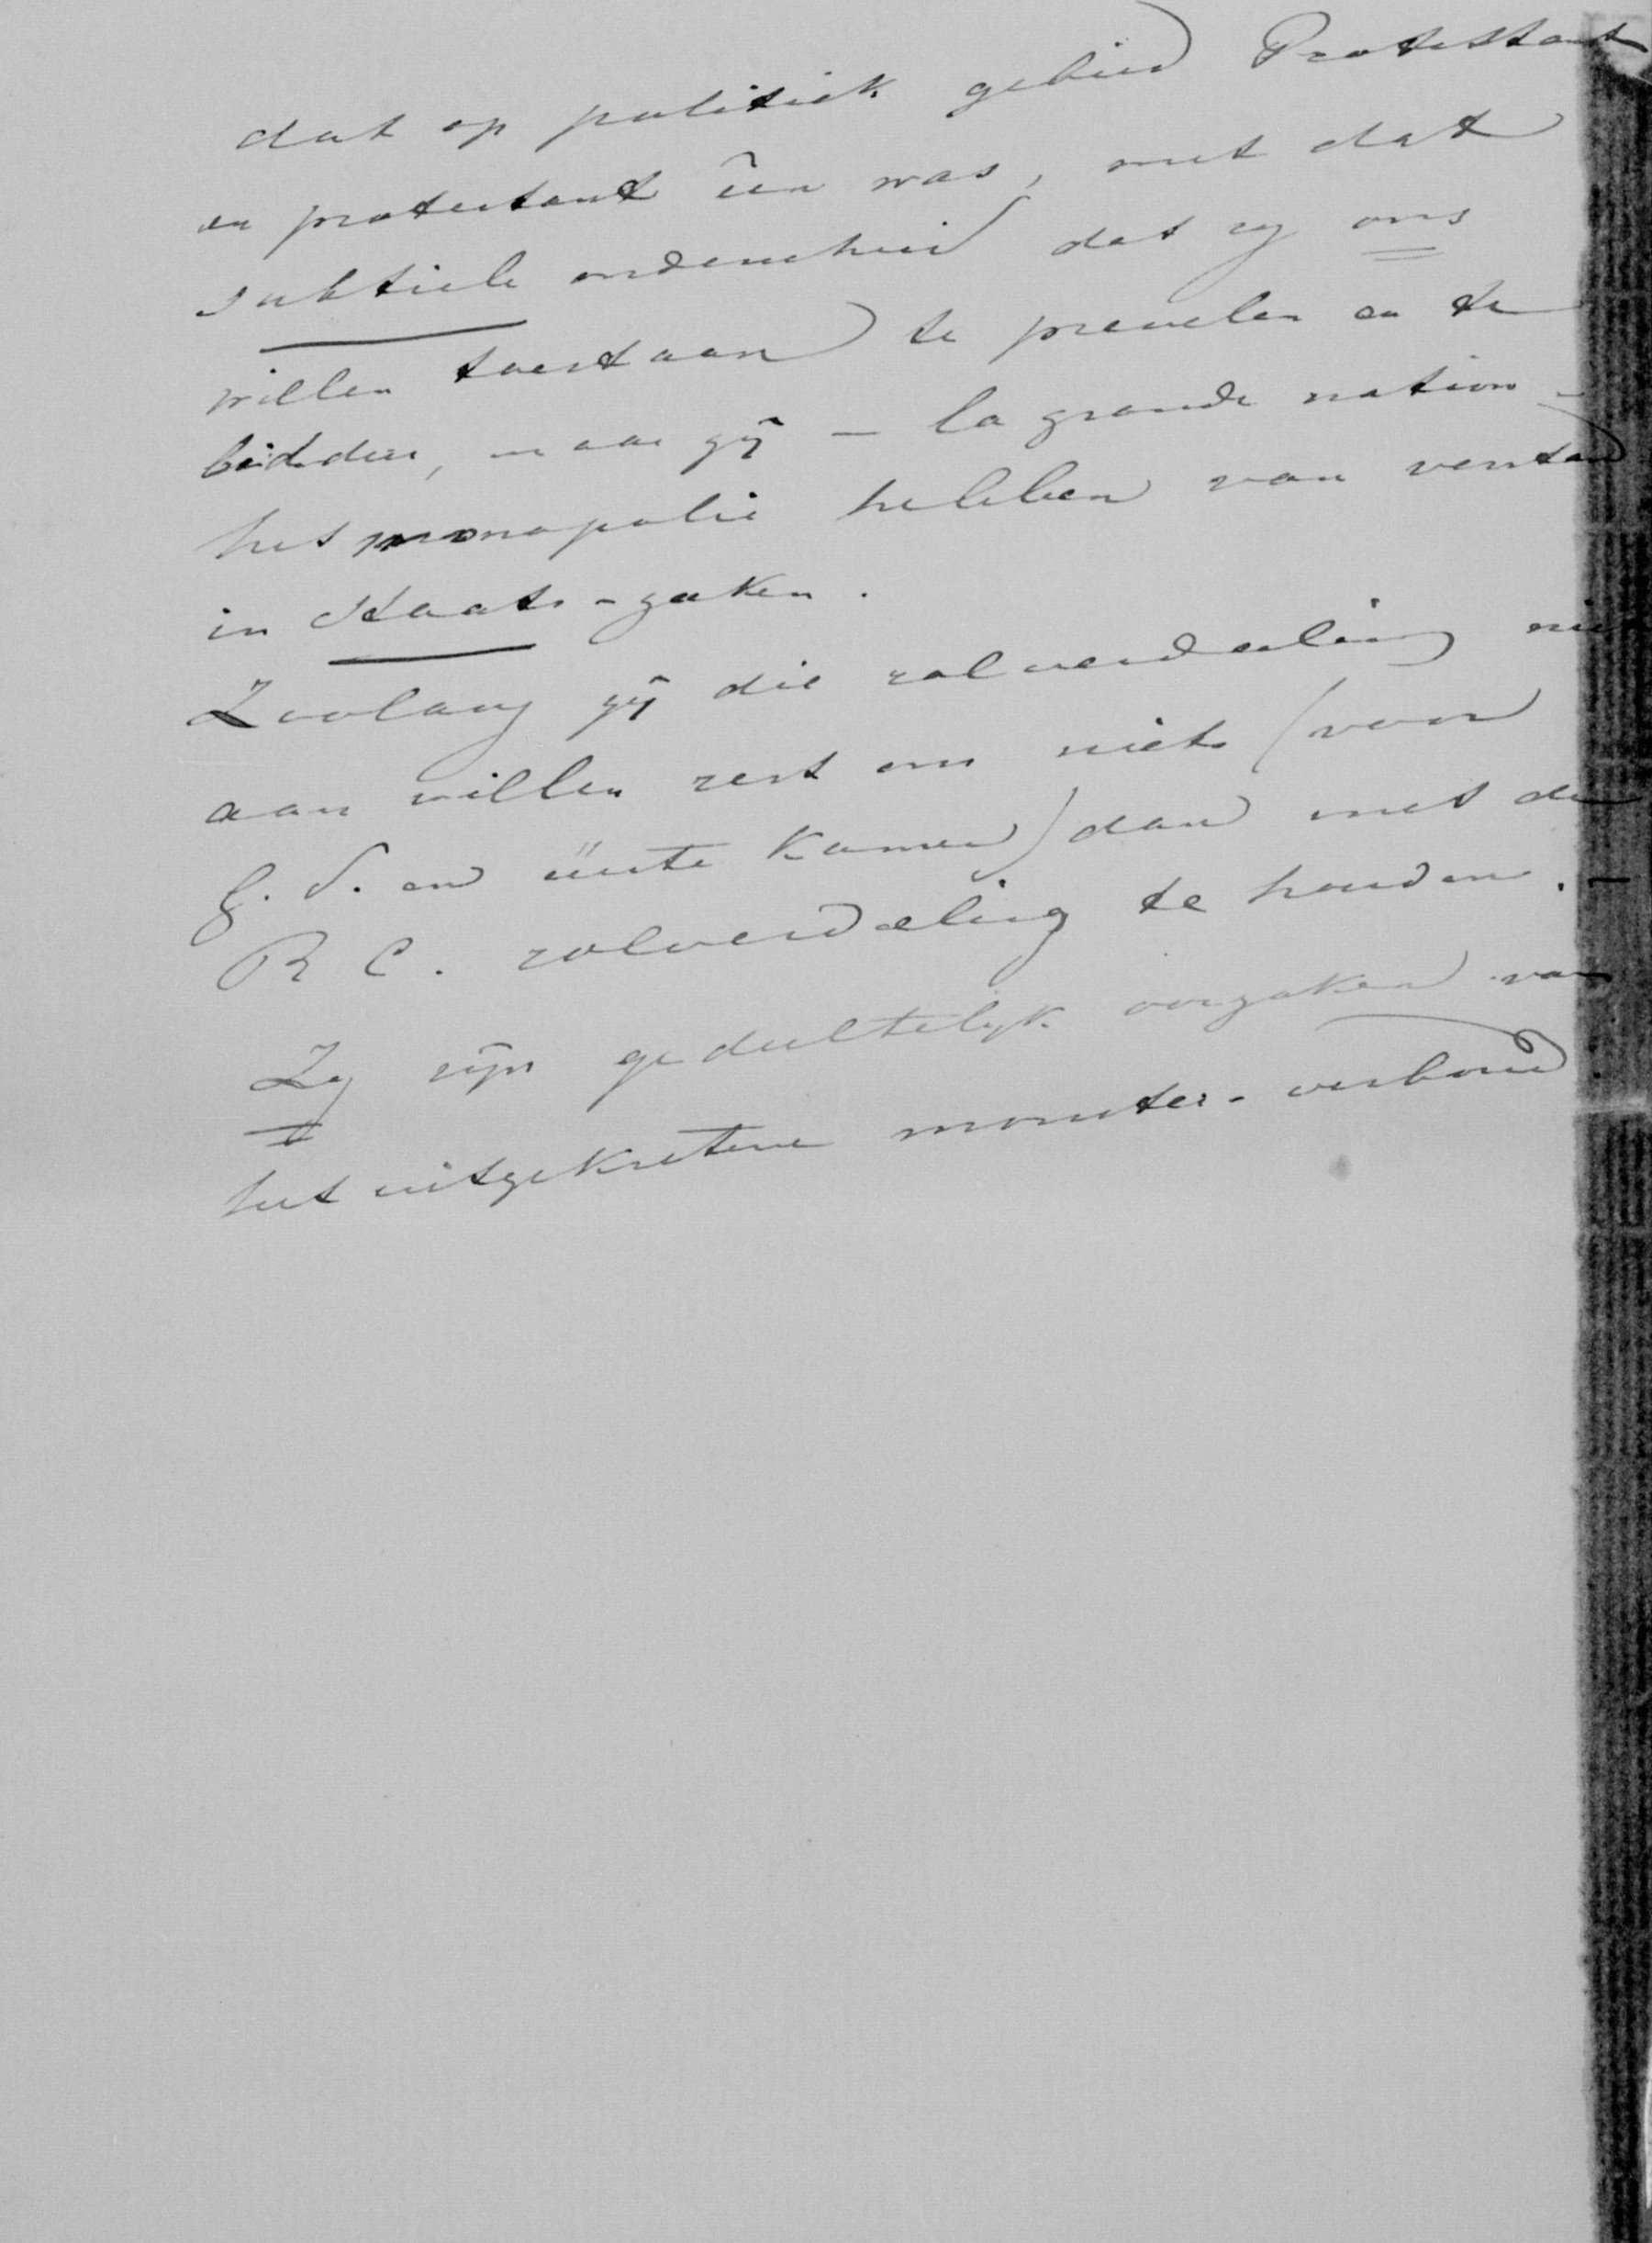 dat op politiek gebied Protestant
en protestant één was, met dat
subtiele onderscheid dat zy ons
willen toestaan te prevelen en te
bidden, maar zij – la grande nation –
het monopolie hebben van verstand
in Staats-zaken.
Zoolang zij die rolverdeeling niet
aan willen rest ons niets (voor
P. S. en eerste Kamer) dan met de
R C. rolverdeling te houden.
Zy zijn gedeeltelyk oorzaken van
het uitgekretene monster-verbond.